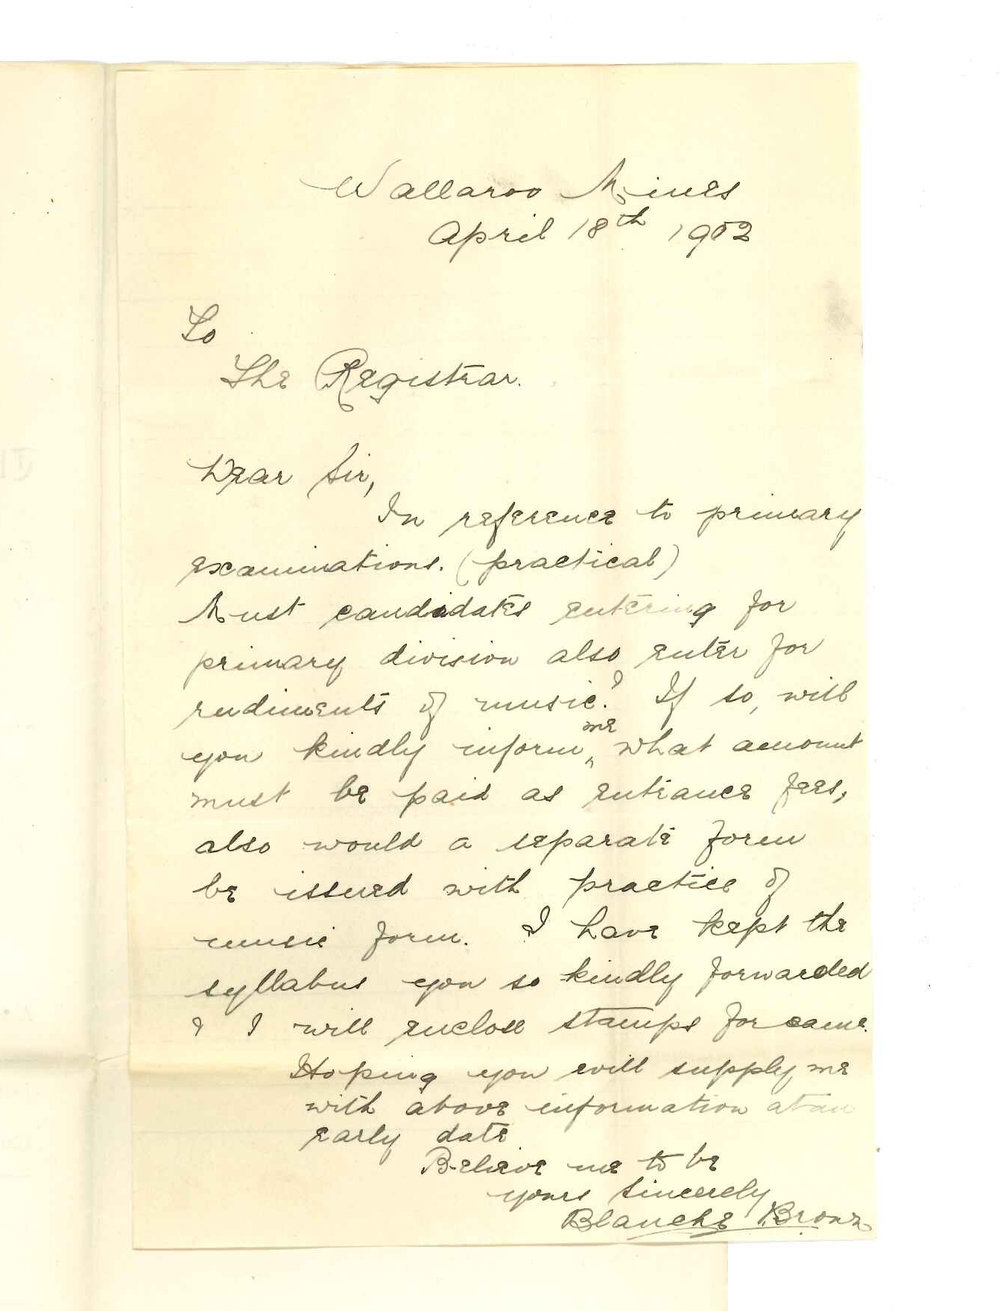 Wallaroo Mines
April 18th 1902
To
The Registrar.
Dear Sir,
In reference to primary
examinations. (practical)
Must candidates entering for
primary division also enter for
rudiments of music? If so, will
you kindly inform me what amount
must be paid as entrance fees,
also would a separate form
be issued with practice of
music form. I have kept the
syllabus you so kindly forwarded
& I will enclose stamps for same.
Hoping you will supply me
with above information at an
early date
Believe me to be
yours sincerely
Blanche